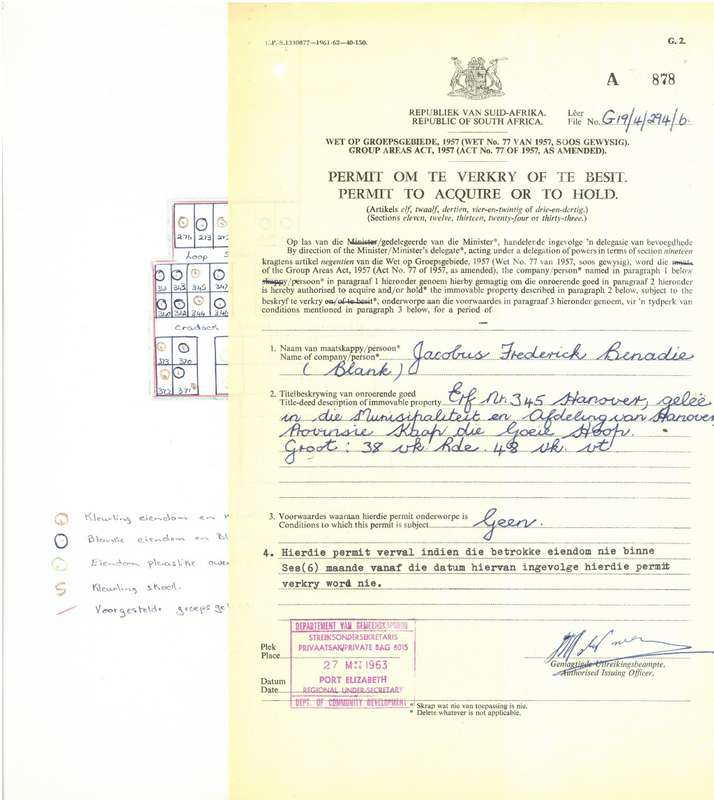 G.P.-S.1330877—1961-62—40-150.
G. 2.
A 878
REPUBLIEK VAN SUID-AFRIKA.
REPUBLIC OF SOUTH AFRICA.
Lêer
File No. G19/4/294/6.
WET OP GROEPSGEBIEDE, 1957 (WET No. 77 VAN 1957, SOOS GEWYSIG).
GROUP AREAS ACT, 1957 (ACT No. 77 OF 1957, AS AMENDED).
PERMIT OM TE VERKRY OF TE BESIT.
PERMIT TO ACQUIRE OR TO HOLD.
(Artikels elf, twaalf, dertien, vier-en-twintig of drie-en-dertig.)
(Sections eleven, twelve, thirteen, twenty-four or thirty-three.)
Op las van die Minister/gedelegeerde van die Minister*, handelende ingevolge 'n delegasie van bevoegdhede
By direction of the Minister/Minister's delegate*, acting under a delegation of powers in terms of section nineteen
kragtens artikel negentien van die Wet op Groepsgebiede, 1957 (Wet No. 77 van 1957, soos gewysig), word die
of the Group Areas Act, 1957 (Act No. 77 of 1957, as amended), the company/person* named in paragraph 1 below
skappy/persoon* in paragraaf 1 hieronder genoem hierby gemagtig om die onroerende goed in paragraaf 2 hieronder
is hereby authorised to acquire and/or hold* the immovable property described in paragraph 2 below, subject to the
beskryf te verkry en/of te besit*, onderworpe aan die voorwaardes in paragraaf 3 hieronder genoem, vir 'n tydperk van
conditions mentioned in paragraph 3 below, for a period of
—
1. Naam van maatskappy/persoon*
Name of company/person* Jacobus Frederick Benadie
(Blank)
2. Titelbeskrywing van onroerende goed
Title-deed description of immovable property Erf Nr. 345 Hanover, geleë
in die Munisipaliteit en Afdeling van Hanover
Provinsie Kaap die Goeie Hoop.
Groot: 38 vk. rde. 48 vk. vt
3. Voorwaardes waaraan hierdie permit onderworpe is
Conditions to which this permit is subject Geen.
4. Hierdie permit verval indien die betrokke eiendom nie binne
Ses(6) maande vanaf die datum hiervan ingevolge hierdie permit
verkry word nie.
Plek
Place
Datum
Date
DEPARTEMENT VAN GEMEENSKAPSBOU
STREEKSONDERSEKRETARIS
PRIVAATSAK/PRIVATE BAG 6015
27 1963
PORT ELIZABETH
REGIONAL UNDER-SECRETARY
DEPT. OF COMMUNITY DEVELOPMENT
Gemagtigde Uitreikingsbeampte.
Authorised Issuing Officer.
* Skrap wat nie van toepassing is nie.
* Delete whatever is not applicable.
276 273
Loop S
311 343 345 347
342 344 346
Cradock
373 370
372 371
Kleurling eiendom en
Blanke eiendom en Bl
Eiendom plaaslike owe
Kleurling skool.
Voorgestelde groepsge